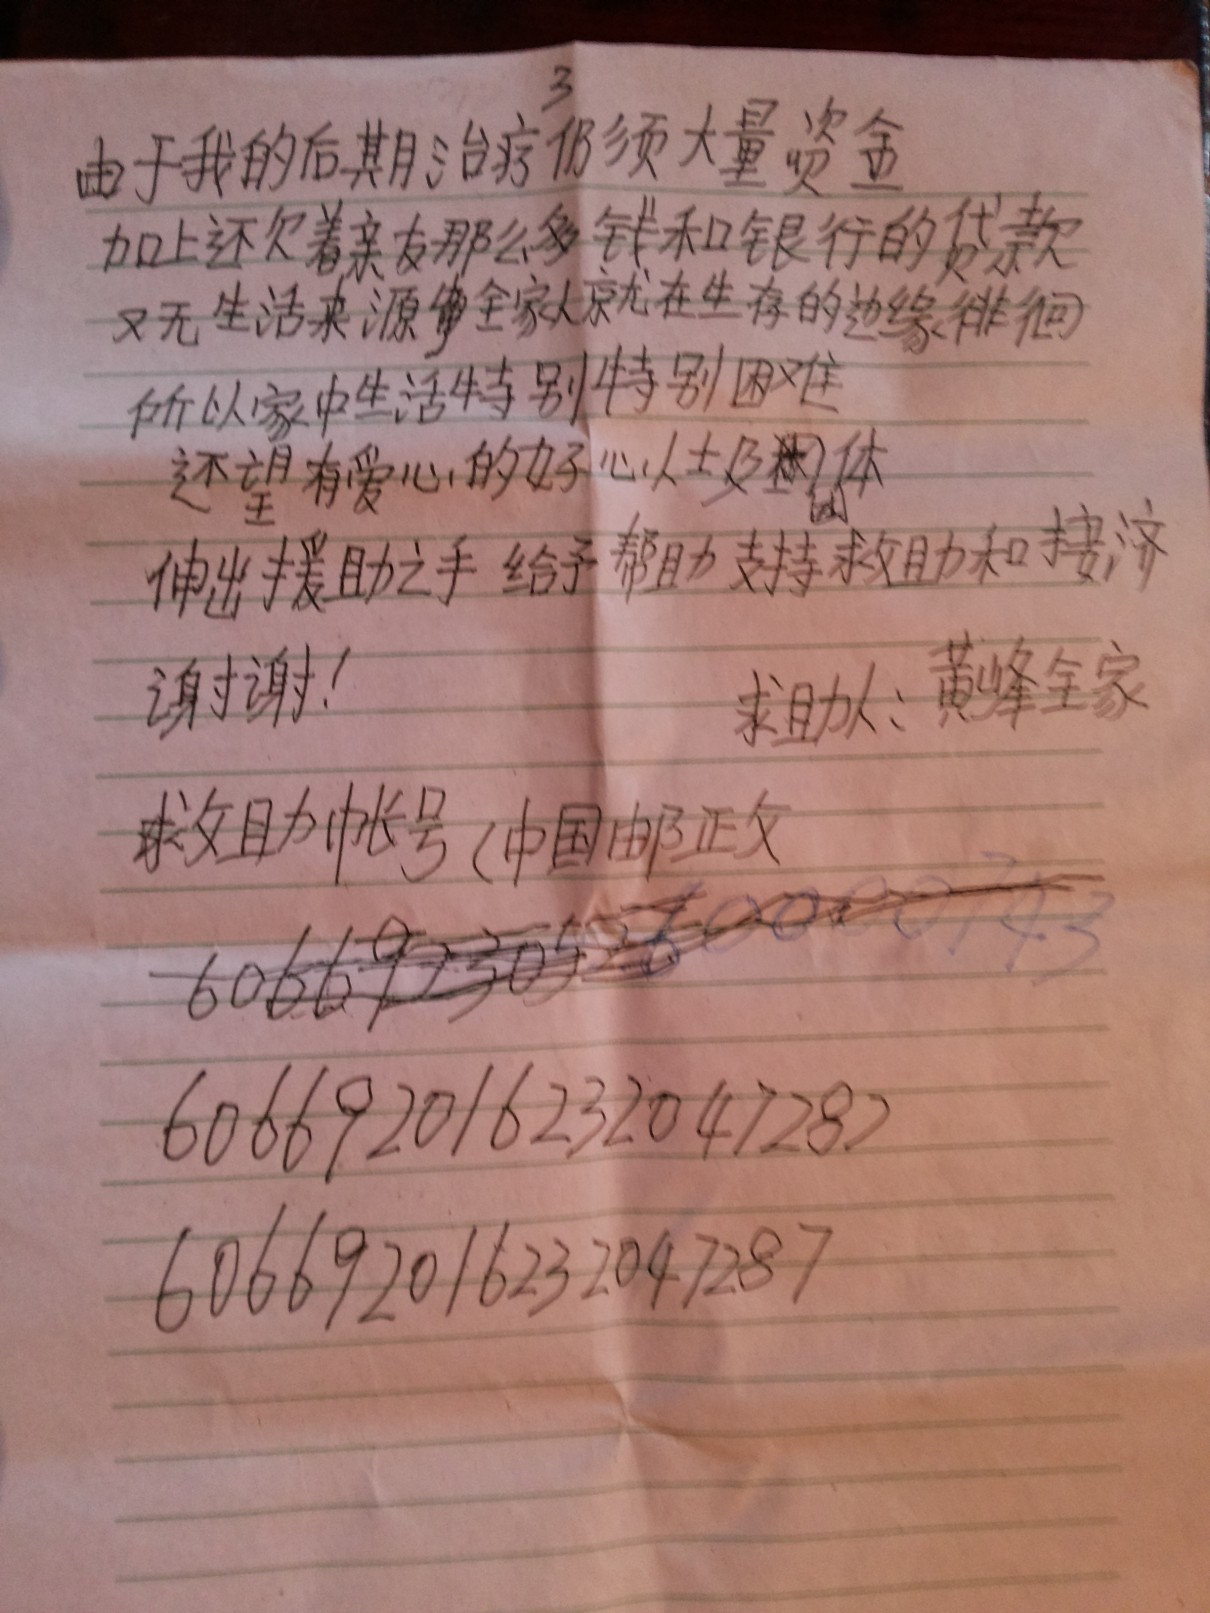 3
由于我的后期治疗仍须大量资金
加上还欠着亲友那么多钱和银行的贷款
又无生活来源 全家人就在生存的边缘徘徊
所以家中生活特别特别困难
还望有爱心的好心人士及团体
伸出援助之手 给予帮助 支持救助和接济
谢谢!
求助人:黄峰全家
救助帐号(中国邮政
606692016232047287
606692016232047287